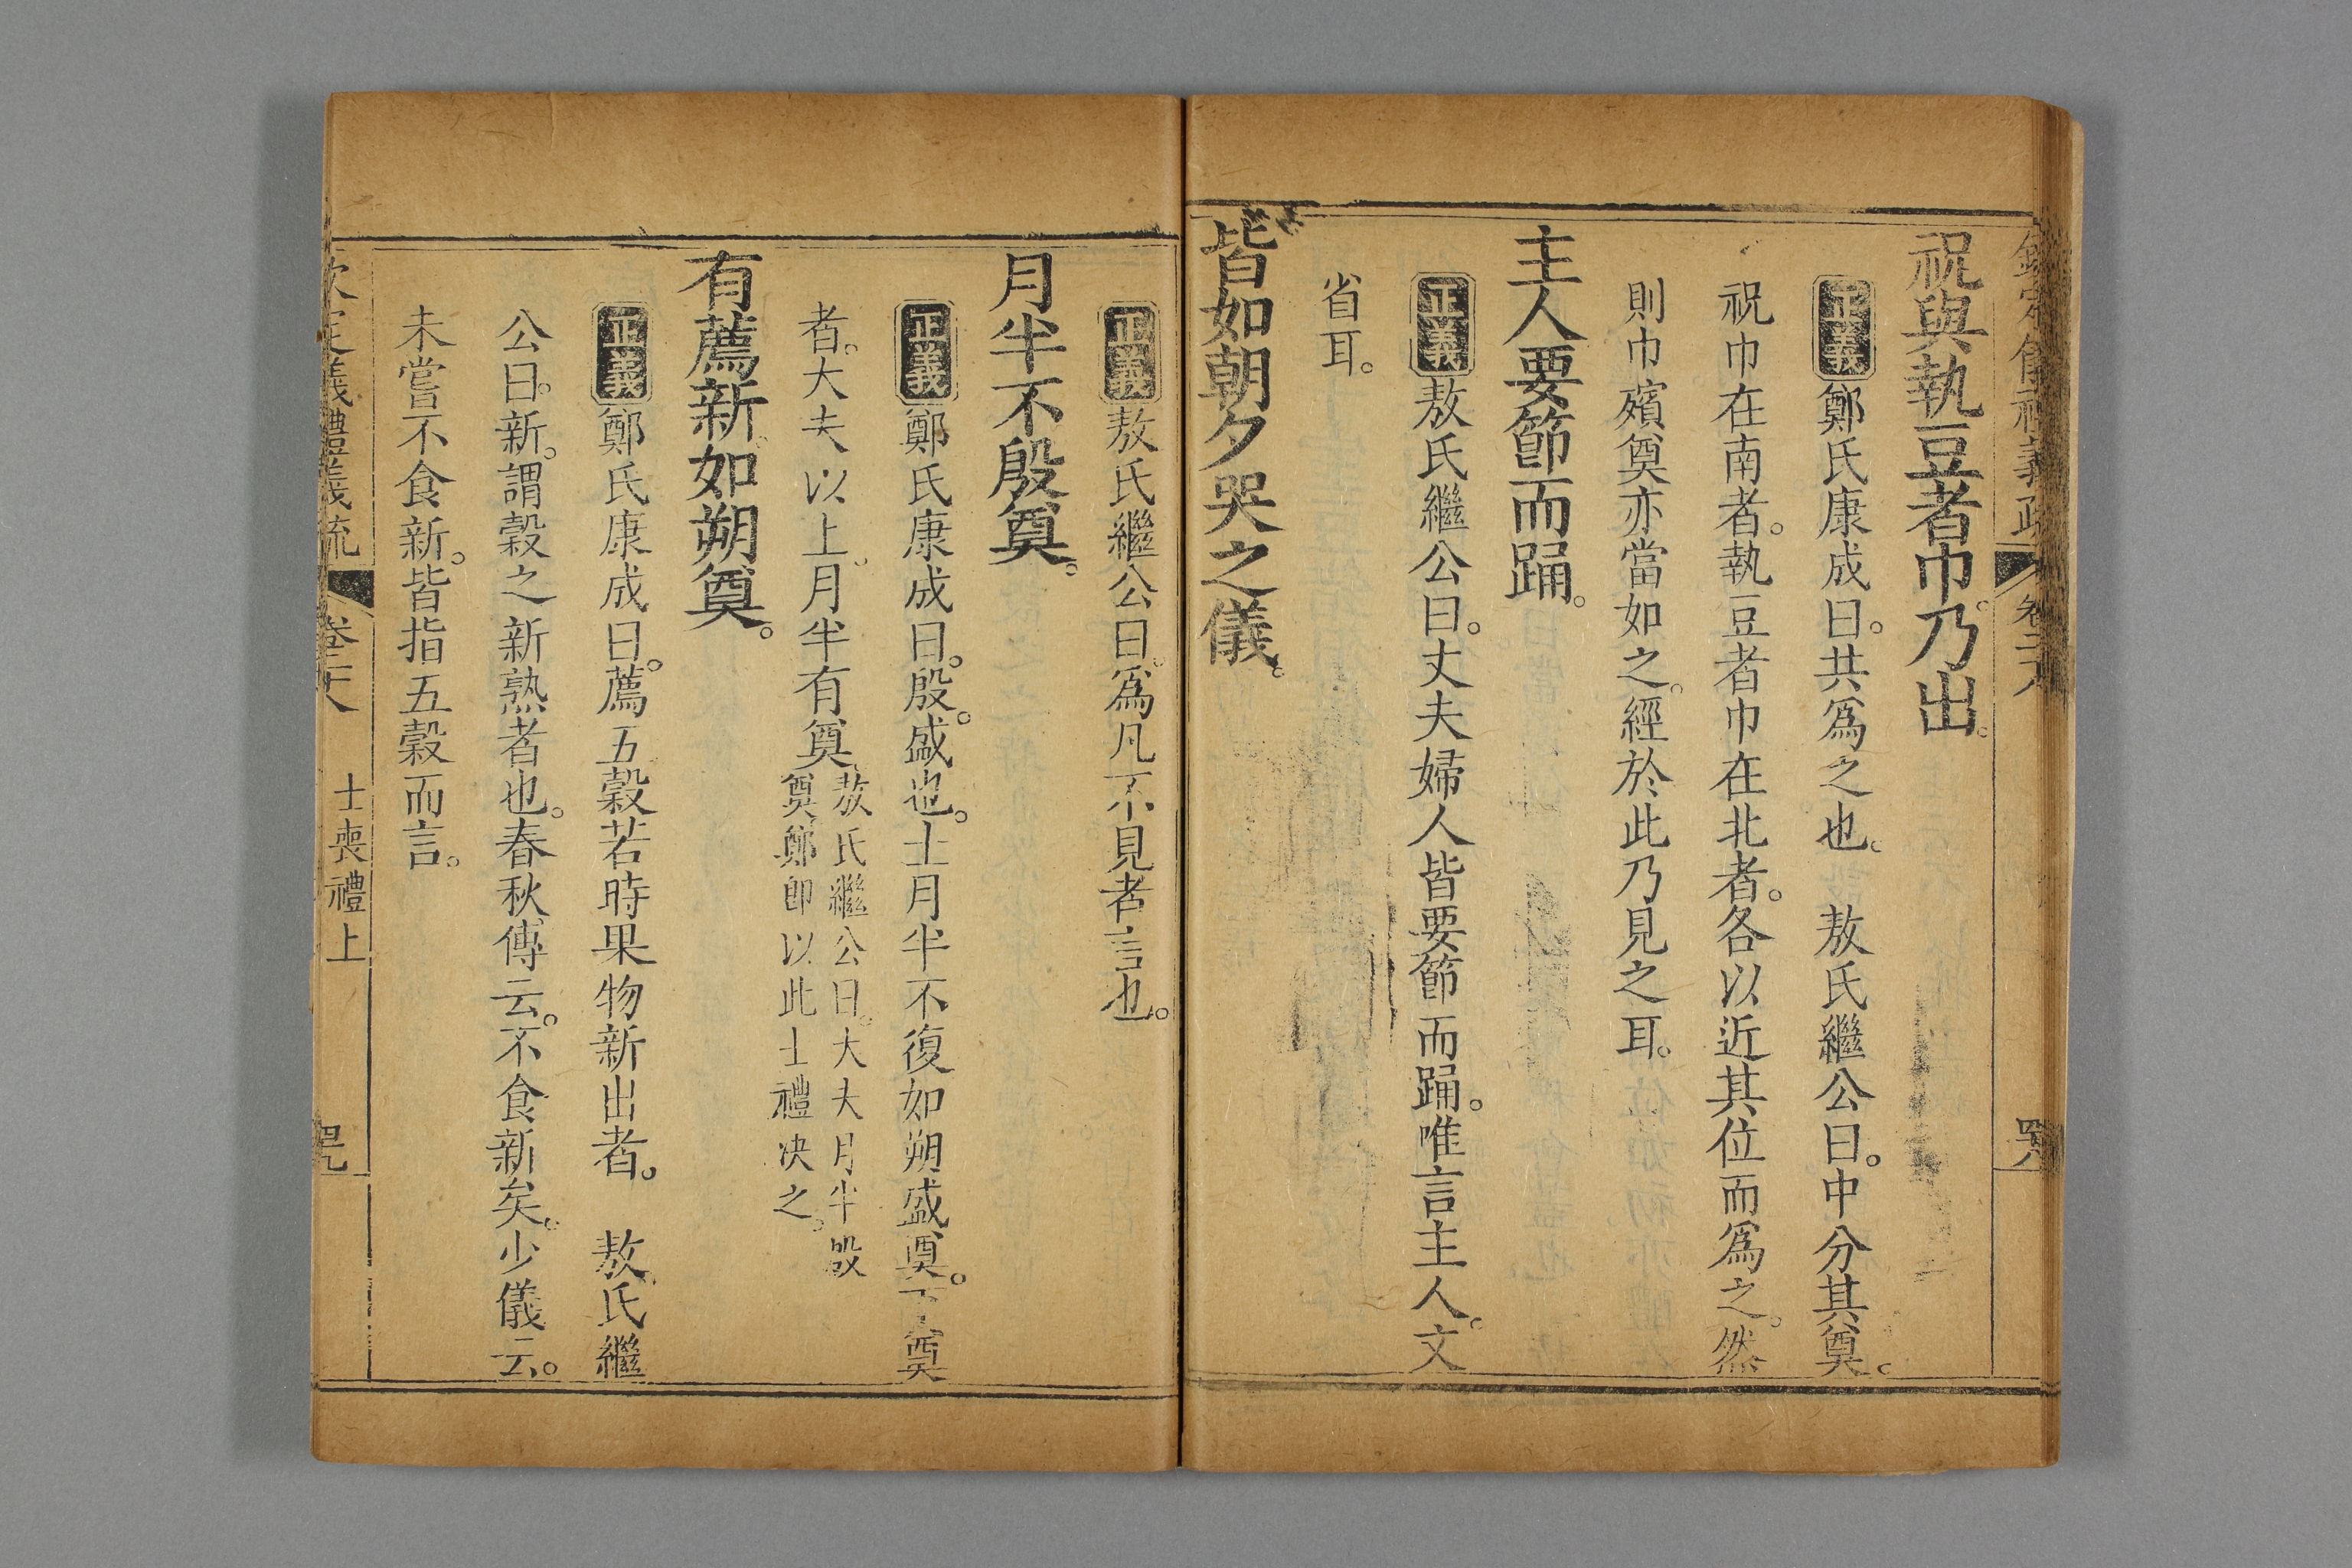 欽定儀禮義疏 卷二八 四八
祝與執豆者巾。乃出。
正義鄭氏康成曰。共爲之也。 敖氏繼公曰。中分其奠。
祝巾在南者。執豆者巾在北者。各以近其位而爲之。然
則巾殯奠亦當如之。經於此乃見之耳。
主人要節而踊。
正義敖氏繼公曰。丈夫婦人皆要節而踊。唯言主人。文
省耳。
皆如朝夕哭之儀。
正義敖氏繼公曰。爲凡不見者言也。
月半不殷奠。
正義鄭氏康成曰。殷。盛也。士月半不復如朔盛奠。下奠
者。大夫以上。月半有奠。
敖氏繼公曰。大夫月半殷
奠。鄭卽以此士禮决之。
有薦新。如朔奠。
正義鄭氏康成曰。薦五穀若時果物新出者。 敖氏繼
公曰。新。謂穀之新熟者也。春秋傳云。不食新矣。少儀云。
未嘗不食新。皆指五穀而言。
欽定儀禮義疏 卷二八 士喪禮上 四九